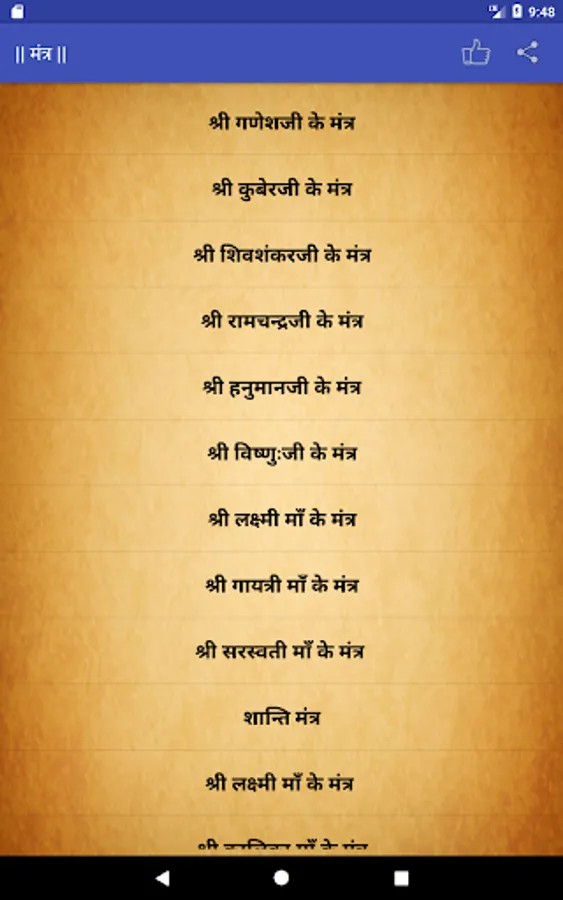 9:48
|| मंत्र ||
श्री गणेशजी के मंत्र
श्री कुबेरजी के मंत्र
श्री शिवशंकरजी के मंत्र
श्री रामचन्द्रजी के मंत्र
श्री हनुमानजी के मंत्र
श्री विष्णुःजी के मंत्र
श्री लक्ष्मी माँ के मंत्र
श्री गायत्री माँ के मंत्र
श्री सरस्वती माँ के मंत्र
शान्ति मंत्र
श्री लक्ष्मी माँ के मंत्र